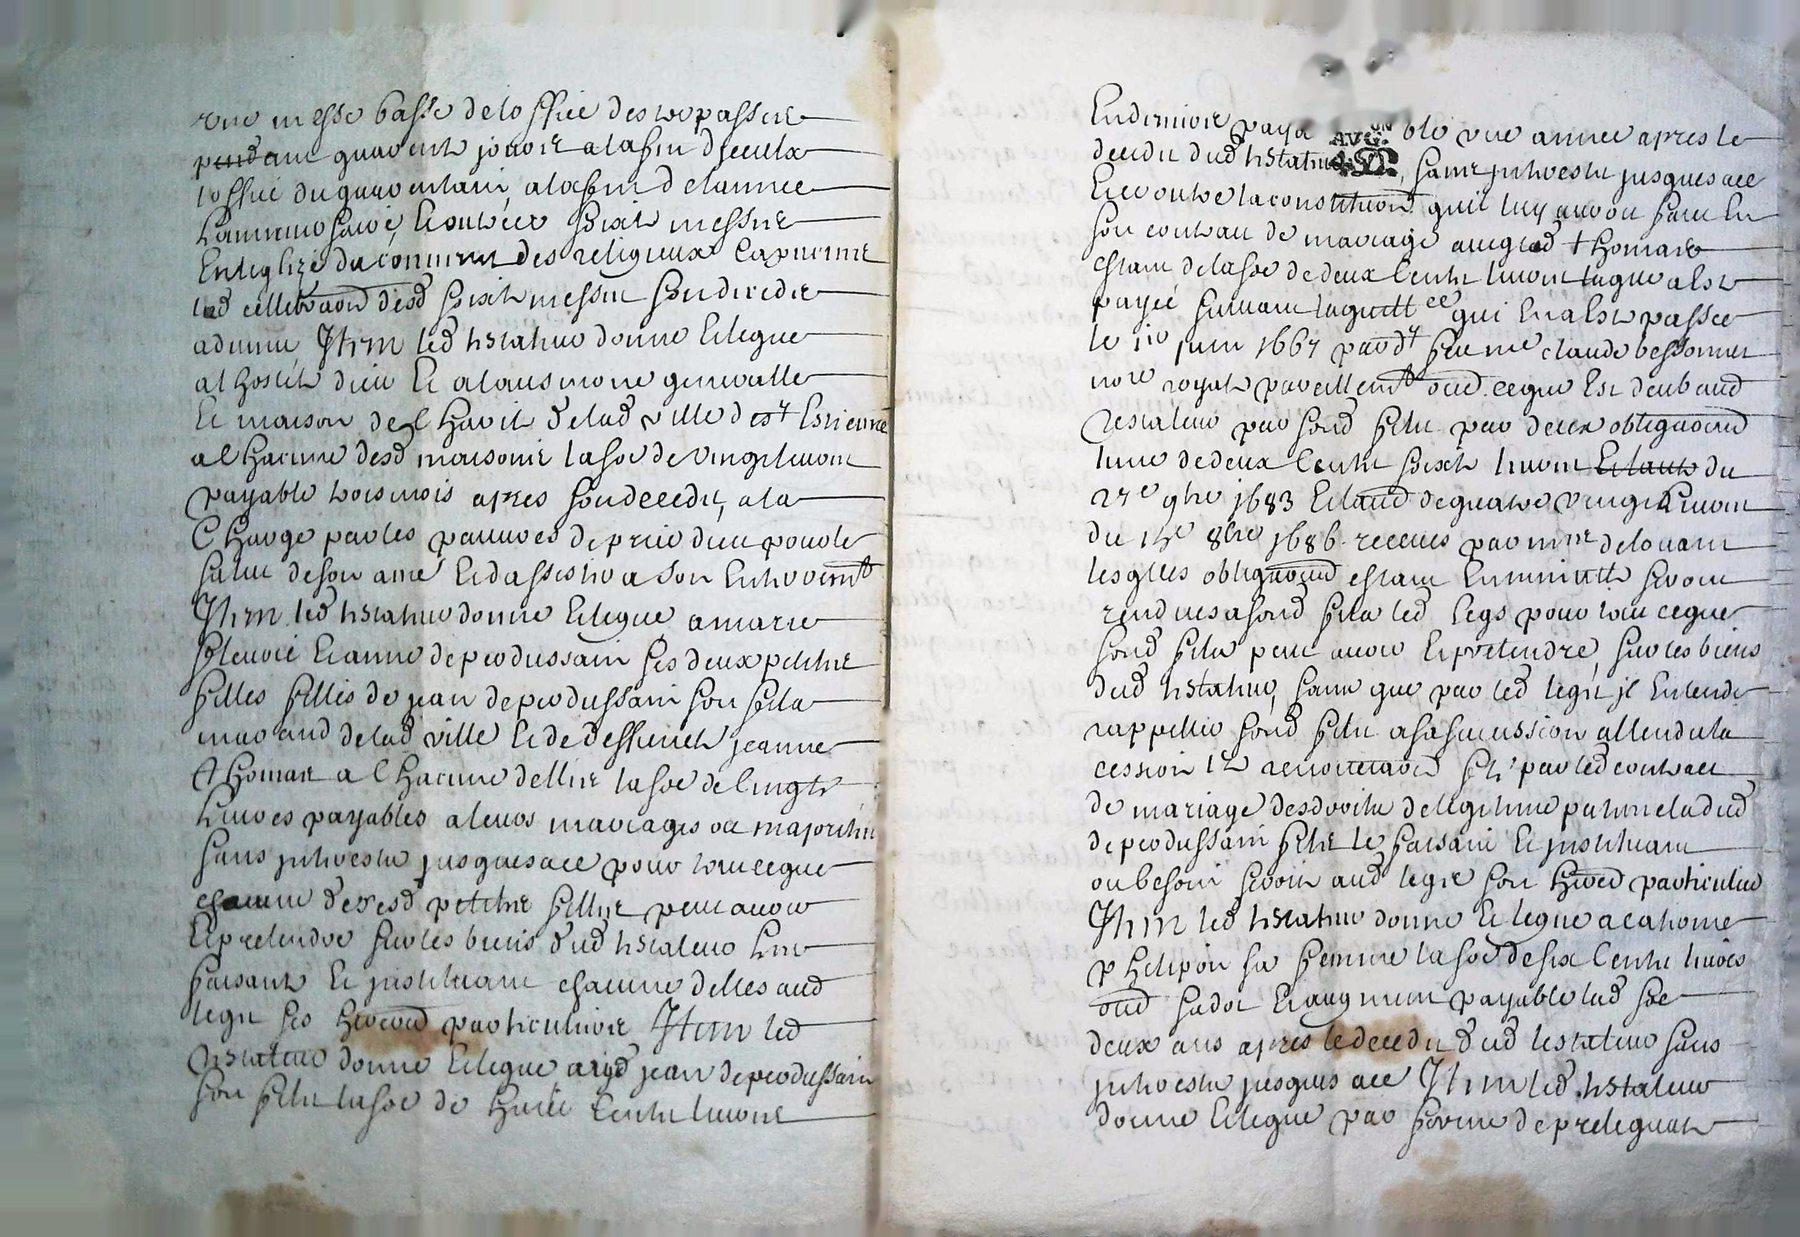 une messe basse de loffice des trepasses
pendant quarente jours a la fin diceulx
loffice du quarentain, a la fin de lannee
lanniversaire, et outtre ce sixt messes
en leglize du couvent des religieux capucins
lad cellebraon desd sixt messes sondict de
advenu, Item led testateur donne et legue
al hostel dieu et a laumone generalle
et maison de l Charité de lad ville de st Estienne
a chacune desd maisons la soe de vingt livres
payable trois mois apres son decedz, a la
charge par les pauvres de prier dieu pour le
salut de son ame et dassister a son enterremt
Item led testateur donne et legue a marie
fleurie et anne deprodussain ses deux petites
filles filles de jean deprodussain son fils
marchand de lad ville et de deffuncte jeanne
thomas a chacune delles la soe de vingt
livres payables a leurs mariages ou majorités
sans interestz jusques a ce pour tout ce que
chacune desd petites filles peut avoir
et pretendre sur les biens dud testateur les
faisant et instituant chacune delles aud
legat ses heres particulieres Item led
testateur donne et legue aud jean deprodussain
son fils la soe de huict cents livres
en deniers payable une annee apres le
decedz dud testateur, sans interestz jusques a ce
et ce outre la constitution quil luy auroit faict en
son contrat de mariage avec lad thomas
estant de la soe de deux cents livres laquelle a este
payée suivant la quittce qui en a este passée
le juin 1667 par dt feu me claude bessonnet
nore royal pareillemt oud ce que est deub aud
testateur par sond fils par deux obligaons
lune de deux cents sixt livres et lautr du
27e 9bre 1683 et laud de quatre vingt livres
du 8bre 1686 receues par me delorant
lesqlles obligaons estant en minutte seront
rendues a sond fils led legs pour tout ce que
sond fils peut avoir et pretendre, sur les biens
dud testateur, sans que par led legat il entende
rappeller sond fils a sa succession attendu la
cession et renontiaon fte par led contract
de mariage des droits de legitime paternel dud
deprodussain fils le faisant et instituant
ou besoin seroit aud legat son hered particulier
Item led testateur donne et legue a catherine
phelipon sa femme la soe de six cents livres
oud sa dot et augment payable lad soe
deux ans apres le decedz dud testateur sans
interestz jusques a ce Item led testateur
donne et legue par forme de prelegat